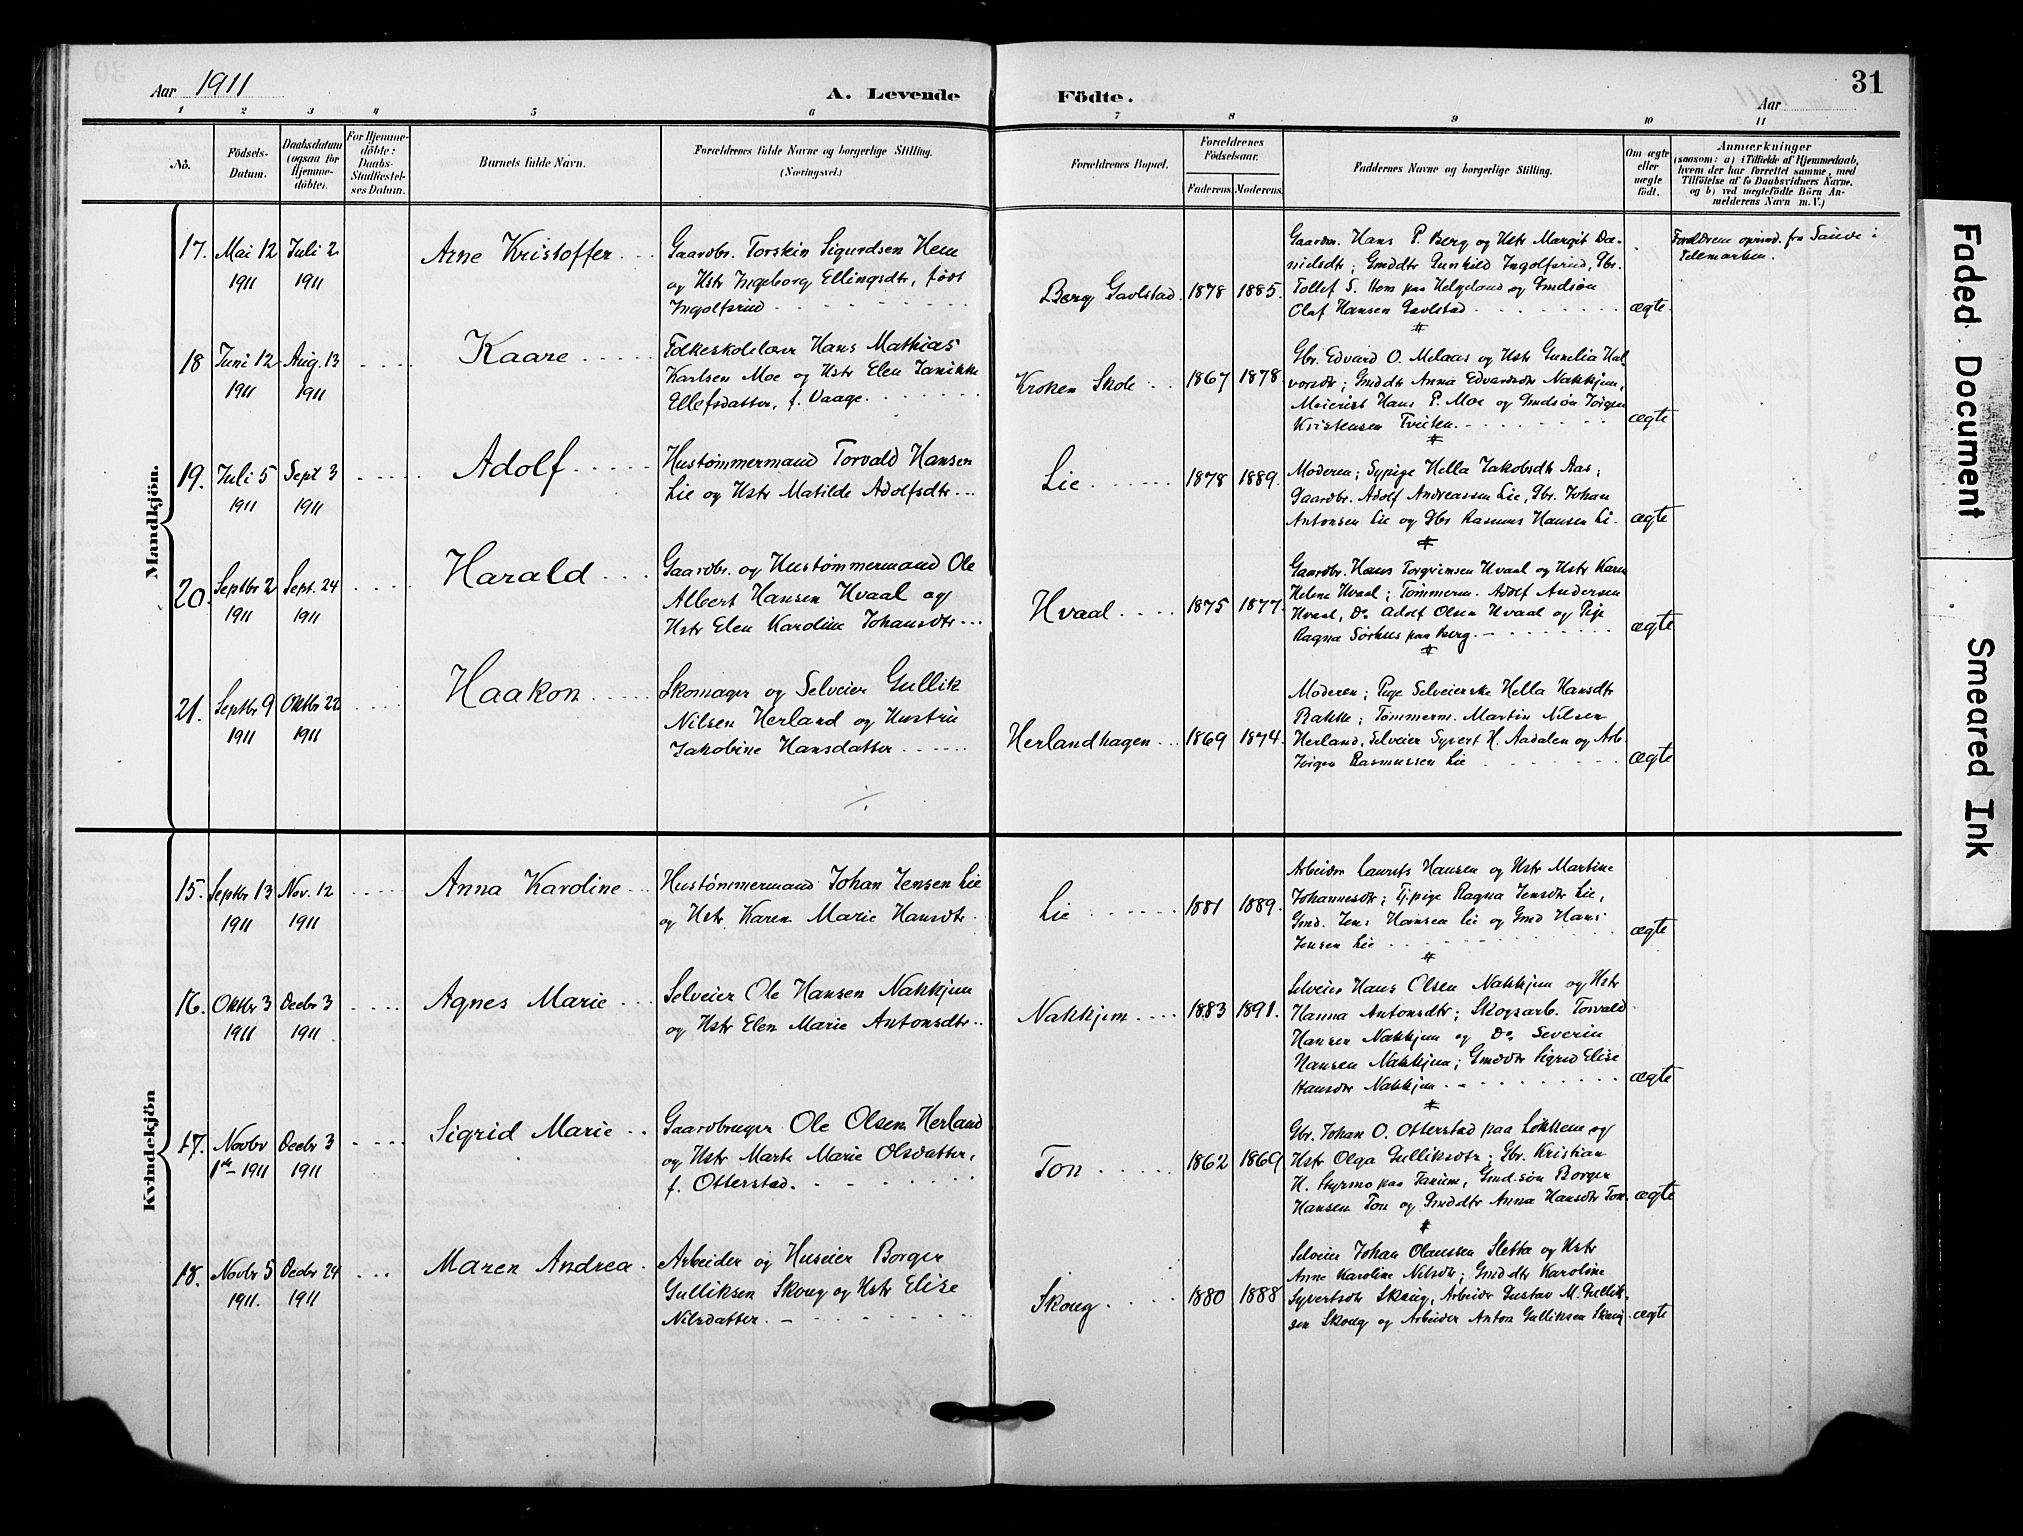 Aar 1911
A. Levende Födte.
31
Aar
1 2 3 4 5 6 7 8 9 10 11
No.
Födsels-Datum.
Daabsdatum (ogsaa för Hjemme-döbte).
For Hjemme-döbte: Daabs-Stadfæstel-ses Datum.
Barnets fulde Navn.
Forældrenes fulde Navne og borgerlige Stilling. (Næringsvei.)
Forældrenes Bopæl.
Forældrenes Födselsaar.
Faderens. Moderens.
Faddernes Navne og borgerlige Stilling.
Om ægte eller uægte födt.
Anmærkninger
(saasom: a) i Tilfælde af Hjemmedaab, hvem der har forrettet samme, med Tilföielse af to Daabsvidners Navne, og b) ved uægtefödte Börn An-melderens Navn m. V.)
Mandkjön.
17. Mai 12 1911
Juli 2 1911
Arne Kristoffer
Gaardbr. Torstein Sigurdsen Hem
og Hstr Ingeborg Ellingsdtr, født
Ingolfsrud
Berg Gavlstad. 1878 1885.
Gaardm. Hans P. Berg og Hstr Margit Da-
nielsdtr; Gmddtr Gunhild Ingolfsrud, Gbr.
Tollef S. Hem paa Helgeland og Gmdsøn
Olaf Hansen Gavlstad
ægte.
Forældrene oprind. fra Sauve i
Telemarken.
18 Juni 12 1911
Aug. 13 1911
Kaare
Folkeskolelærer Hans Mathias
Karlsen Moe og Hstr Elen Janikke
Ellefsdatter, f. Vaage.
Kroken Skole 1867 1878
Gbr. Edvard O. Melaas og Hstr Gunelia Hal
vorsdtr; Gmddtr Anna Edvardsdtr Nakkjem,
Meierist Hans P. Moe og Gmdsøn Jørgen
Kristensen Tveiten.
ægte
19. Juli 5 1911
Sept 3 1911
Adolf
Hustømmermand Torvald Hansen
Lie og Hstr Matilde Adolfsdtr
Lie 1878 1889.
Moderen; Sypige Hella Jakobsdtr Aas;
Gaardbr. Adolf Andreassen Lie, Gbr. Johan
Antonsen Lie og Gbr Rasmus Hansen Li.
ægte
20. Septbr 2 1911
Sept. 24 1911
Harald
Gaardbr. og Hustømmermand Ole
Albert Hansen Hvaal og
Hstr Elen Karoline Johansdtr
Hvaal 1875 1877.
Gaardbr. Hans Torgrimsen Hvaal og Hstr Karen
Helene Hvaal; Tømmerm. Adolf Andersen
Hvaal, Do Adolf Olsen Hvaal og Pige
Ragna Sørhus paa Berg.
ægte
21. Septbr 9 1911
Oktbr 22 1911
Haakon
Skomager og Selveier Gullik
Nilsen Herland og Hustru
Jakobine Hansdatter
Herlandhagen 1869 1874.
Moderen; Pige Selveierske Hella Hansdtr
Bakke; Tømmerm. Martin Nilsen
Herland, Selveier Syvert H. Aadalen og Arb.
Jørgen Rasmussen Lie
ægte
Kvindekjön
15. Septbr 13 1911
Nov. 12 1911
Anna Karoline
Hustømmermand Johan Jensen Lie
og Hstr. Karen Marie Hansdtr
Lie 1881 1889.
Arbeider Laurits Hansen og Hstr Martine
Johannesdtr; Tj.pige Ragna Jensdtr Lie,
Gmd. Jens Hansen Lie og Gmd Hans
Jensen Lie
ægte
16. Oktbr 3 1911
Decbr 3 1911
Agnes Marie
Selveier Ole Hansen Nakkjem
og Hstr Elen Marie Antonsdtr
Nakkjem 1883 1891.
Selveier Hans Olsen Nakkjem og Hstr
Hanna Antonsdtr; Skogsarb. Torvald
Hansen Nakkjem og Do Severin
Hansen Nakkjem; Gmddtr Sigrid Elise
Hansdtr Nakkjem.
ægte
17. Novbr 1ste 1911
Decbr 3 1911
Sigrid Marie
Gaardbruger Ole Olsen Herland
og Hstr Marte Marie Olsdatter,
f. Otterstad.
Ton 1862 1869
Gbr. Johan O. Otterstad paa Løkken og
Hstr Olga Gulliksdtr; Gbr. Kristian
H. Styrmo paa Tanum, Gmd.søn Borger
Hansen Ton og Gmddtr Anna Hansdtr Ton
ægte
18. Novbr 5 1911.
Decbr 24 1911
Maren Andrea
Arbeider og Huseier Borger
Gulliksen Skoug og Hstr Elise
Nilsdatter.
Skoug 1880 1888
Selveier Johan Olaussen Sletta og Hstr
Anne Karoline Nilsdtr; Gmddtr Karoline
Syvertsdtr Skoug, Arbeider Gustav M. Gullik-
sen Skoug og Arbeider Anton Gulliksen Skoug
ægte
Faded Document
Smeared Ink